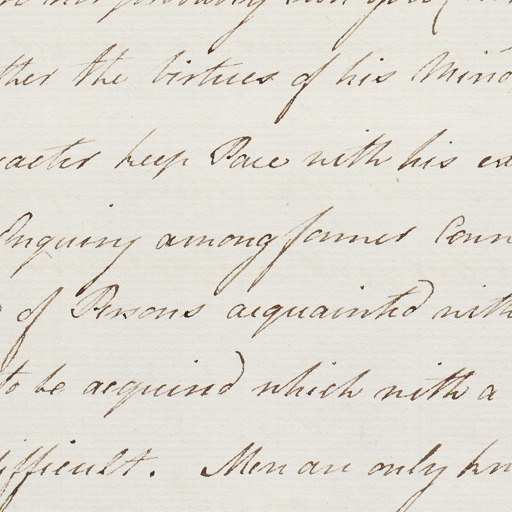 ther the Virtues of his Mind
racter keep Pace with his ex
Inquiry among former Coun
of Persons acquainted with
to be acquired which with a
ifficult. Men are only kn